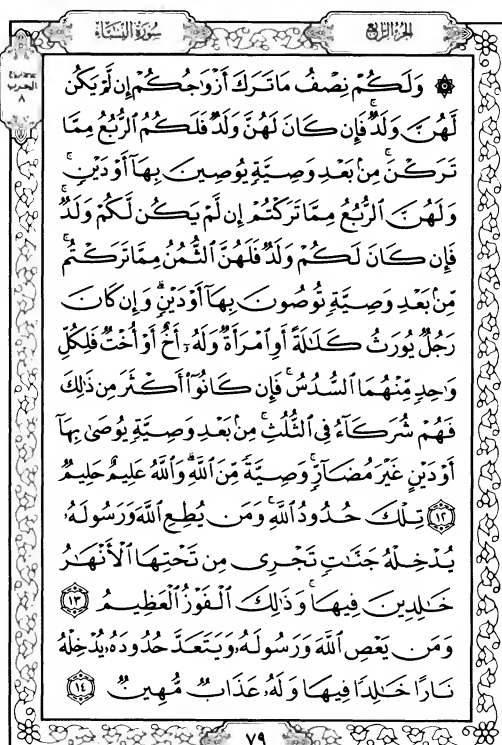 الجزء الرابع
سورة النساء
الحزب
٨
۞ وَلَكُمْ نِصْفُ مَا تَرَكَ أَزْوَاجُكُمْ إِن لَّمْ يَكُن
لَّهُنَّ وَلَدٌ ۚ فَإِن كَانَ لَهُنَّ وَلَدٌ فَلَكُمُ الرُّبُعُ مِمَّا
تَرَكْنَ ۚ مِنۢ بَعْدِ وَصِيَّةٍ يُوصِينَ بِهَآ أَوْ دَيْنٍ ۚ
وَلَهُنَّ الرُّبُعُ مِمَّا تَرَكْتُمْ إِن لَّمْ يَكُن لَّكُمْ وَلَدٌ ۚ
فَإِن كَانَ لَكُمْ وَلَدٌ فَلَهُنَّ الثُّمُنُ مِمَّا تَرَكْتُم ۚ
مِّنۢ بَعْدِ وَصِيَّةٍ تُوصُونَ بِهَآ أَوْ دَيْنٍ ۗ وَإِن كَانَ
رَجُلٌ يُورَثُ كَلَٰلَةً أَوِ امْرَأَةٌ وَلَهُۥٓ أَخٌ أَوْ أُخْتٌ فَلِكُلِّ
وَٰحِدٍ مِّنْهُمَا السُّدُسُ ۚ فَإِن كَانُوٓا۟ أَكْثَرَ مِن ذَٰلِكَ
فَهُمْ شُرَكَآءُ فِى الثُّلُثِ ۚ مِنۢ بَعْدِ وَصِيَّةٍ يُوصَىٰ بِهَآ
أَوْ دَيْنٍ غَيْرَ مُضَآرٍّ ۚ وَصِيَّةً مِّنَ اللَّهِ ۗ وَاللَّهُ عَلِيمٌ حَلِيمٌ
١٢ تِلْكَ حُدُودُ اللَّهِ ۚ وَمَن يُطِعِ اللَّهَ وَرَسُولَهُۥ
يُدْخِلْهُ جَنَّٰتٍ تَجْرِى مِن تَحْتِهَا الْأَنْهَٰرُ
خَٰلِدِينَ فِيهَا ۚ وَذَٰلِكَ الْفَوْزُ الْعَظِيمُ ١٣
وَمَن يَعْصِ اللَّهَ وَرَسُولَهُۥ وَيَتَعَدَّ حُدُودَهُۥ يُدْخِلْهُ
نَارًا خَٰلِدًا فِيهَا وَلَهُۥ عَذَابٌ مُّهِينٌ ١٤
٧٩